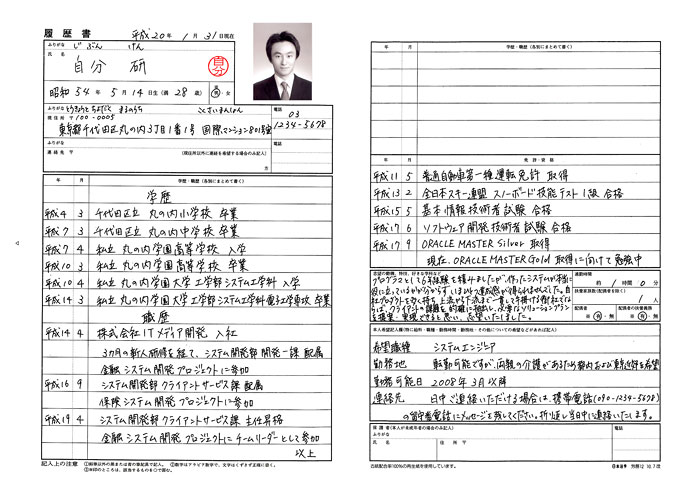 履歴書 平成20年 1月 31日現在
ふりがな じぶん けん
氏名
自分 研
自分
昭和 54年 5月 14日生 (満 28歳) 男・女
ふりがな とうきょうと ちよだく まるのうち こくさいまんしょん
現住所 〒100-0005
東京都千代田区丸の内3丁目1番1号 国際マンション801号室
電話
03
1234-5678
ふりがな
電話
連絡先 〒 (現住所以外に連絡を希望する場合のみ記入)
方
年 月 学歴・職歴(各別にまとめて書く)
学歴
平成4 3 千代田区立 丸の内小学校 卒業
平成7 3 千代田区立 丸の内中学校 卒業
平成7 4 私立 丸の内学園高等学校 入学
平成10 3 私立 丸の内学園高等学校 卒業
平成10 4 私立 丸の内学園大学 工学部システム工学科 入学
平成14 3 私立 丸の内学園大学 工学部システム工学科電子工学専攻 卒業
職歴
平成14 4 株式会社ITメディア開発 入社
3ヵ月の新人研修を経て、システム開発部 開発一課 配属
金融システム開発プロジェクトに参加
平成16 9 システム開発部 クライアントサービス課 配属
保険システム開発プロジェクトに参加
平成19 4 システム開発部 クライアントサービス課 主任昇格
金融システム開発プロジェクトにチームリーダーとして参加
以上
記入上の注意 ①鉛筆以外の黒または青の筆記具で記入。 ②数字はアラビア数字で、文字はくずさず正確に書く。
③※印のところは、該当するものを○で囲む。
年 月 学歴・職歴(各別にまとめて書く)
年 月 免許・資格
平成11 5 普通自動車第一種運転免許 取得
平成13 2 全日本スキー連盟 スノーボード技能テスト1級 合格
平成15 5 基本情報技術者試験 合格
平成17 6 ソフトウェア開発技術者試験 合格
平成17 9 ORACLE MASTER Silver 取得
現在、ORACLE MASTER Gold 取得に向けて勉強中
志望の動機、特技、好きな学科など
プログラマとして6年経験を積みましたが、作ったシステムが本当に
役に立っているかが分からず、いまひとつ達成感が得られませんでした。自
社プロダクトを多く持ち、上流から下流まで一貫して手掛ける御社でな
らば、クライアントの課題を的確に抽出し、必要なソリューションプラン
を提案・実現できると思い、志望いたしました。
通勤時間
約 1時間 0分
扶養家族数(配偶者を除く)
人
配偶者 配偶者の扶養義務
※ 有・無 ※ 有・無
本人希望記入欄(特に給料・職種・勤務時間・勤務地・その他についての希望などがあれば記入)
希望職種 システムエンジニア
勤務地 転勤可能ですが、両親の介護があるため都内および東京近郊を希望
勤務可能日 2008年3月以降
連絡先 日中ご連絡いただける場合は、携帯電話(090-1234-5678)
の留守番電話にメッセージを残してください。折り返し当日中に連絡いたします。
保護者(本人が未成年者の場合のみ記入)
ふりがな
電話
氏名 住所 〒
古紙配合率100%の再生紙を使用しています。